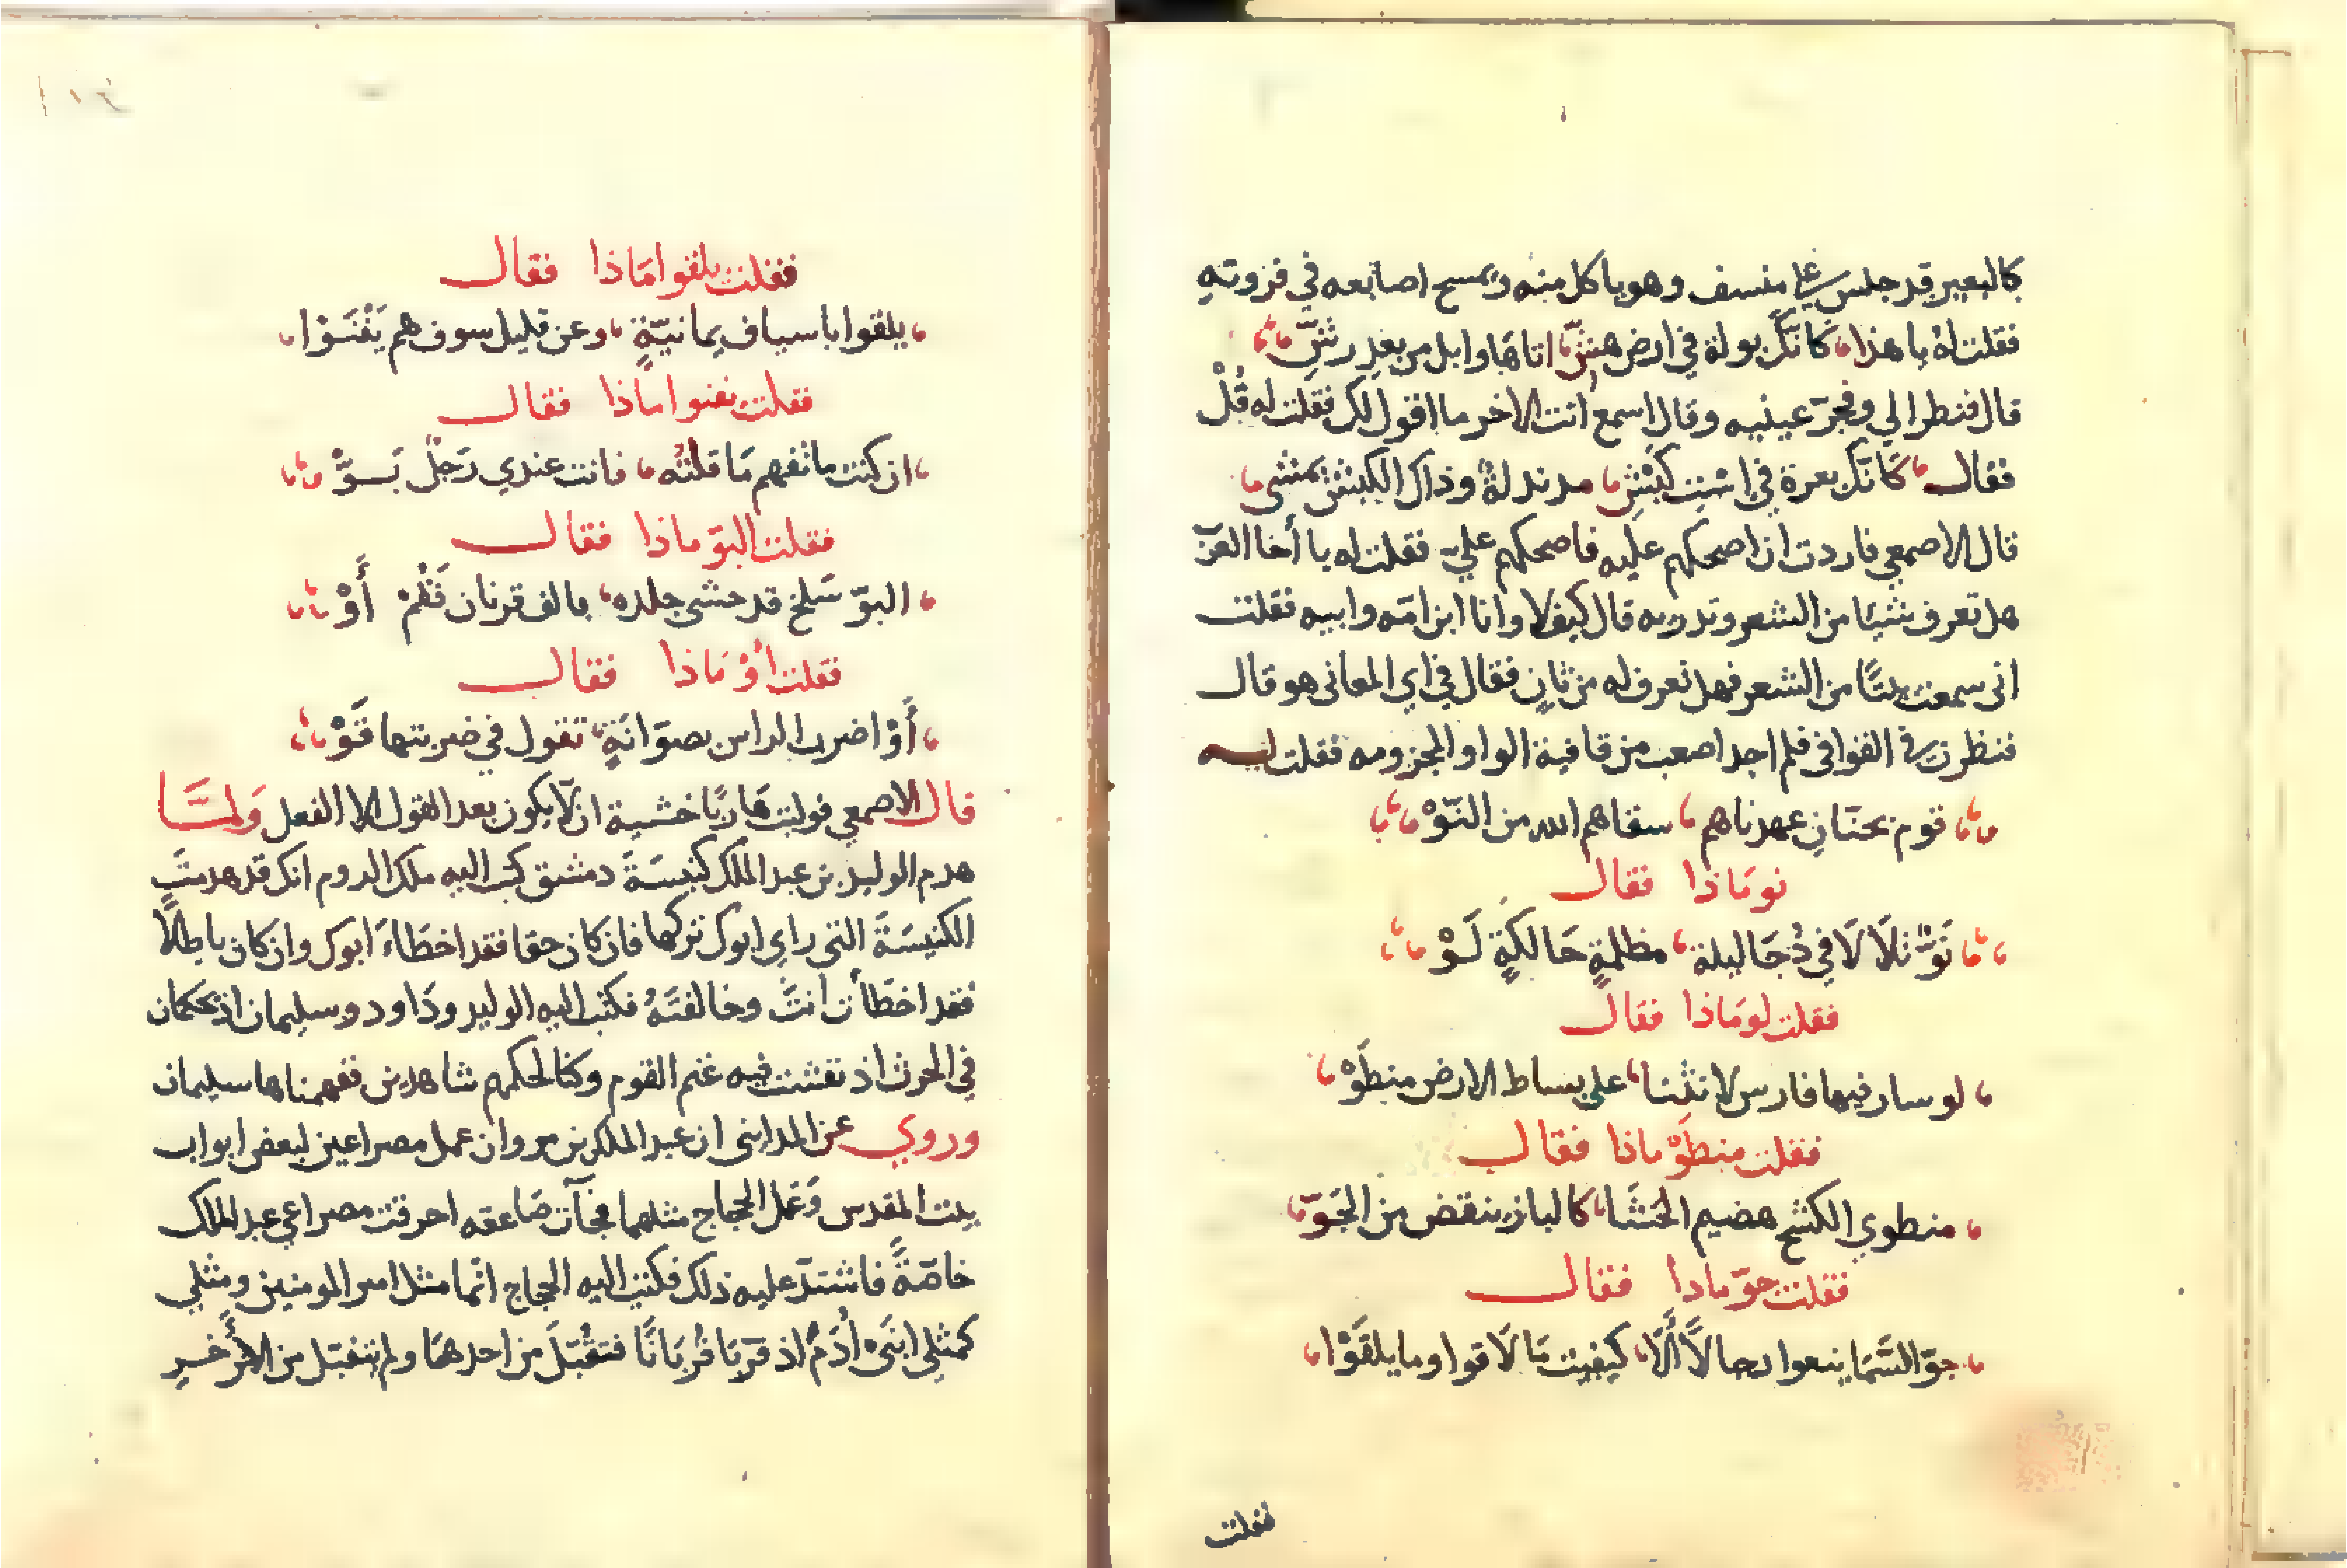 كالبعير قد جلس على منسف وهو ياكل منه ويمسح اصابعه في فروته
فقلت له يا هذا كانك بولة في ارض هش اتاها وابل من بعد رش
قال فنظر الي وفجر عينيه وقال اسمع انت الاخر ما اقول لك فقلت له قُلْ
فقال كَانّك بعرة في إست كبش مدندلة وذاك الكبش يمشى
قال الاصمعي فاردت ان اضحكهم عليه فاضحكهم عليّ فقلت له يا أخا العرب
هل تعرف شيئا من الشعر وتدريه قال كيف لا وانا ابن امّه وابيه فقلت
انى سمعت بيتًا من الشعر فهل تعرف له من ثانٍ فقال في اي المعانى هو قال
فنظرت في القوافى فلم اجد اصعب من قافية الواو المجزومه فقلت له
قوم بحنّانِ عهدناهم سقاهم الله من النّوْ
نو مَاذا فقال
نَوٌّ تلَالَا في دُجَا ليلة مظلمةٍ حَالكةٍ لَوْ
فقلت لو مَاذا فقال
لو سار فيها فارس لانثنا على بساط الارض منطَوْ
فقلت منطَوْ ماذا فقال
منطوي الكشح هضيم الحَشَا كالباز ينقض من الجَوّ
فقلت جوّ ماذا فقال
جوّ السَّمَا ينعوا رجالًا أَلَا كيفيت مَا لَاقوا وما يلقَوْا
فقلت
فقلت يلقوا مَاذا فقال
يلقوا باسياف يمانيّةٍ وعن قليل سوف هم يَفْنَوْا
فقلت يفنوا ماذا فقال
ان كنت ما تفهم مَا قلتُه فانت عندي رَجلٌ بَوّْ
فقلت البوّ ماذا فقال
البوّ سَلخ قد حشى جلده بالف قرنان فَقُمْ أَوْ
فقلت أوْ مَاذا فقال
أَوْ اضرب الراس بصوَانَةٍ تقول في ضربتها قَوْ
قال الاصمعي فوليت هَاربًا خشية ان لَا يكون بعد القول الا الفعل وَلمّا
هدم الوليد بن عبد الملك كنيسَةَ دمشق كتب اليه ملك الروم انك قد هدمتَ
الكنيسَةَ التى راى ابوك تركها فان كان حقا فقد اخطَاءَ ابوك وان كان باطلًا
فقد اخطَأت انتَ وخالفتَهُ فكتب اليه الوليد ودَاود وسليمان اذ يحكمان
في الحرث اذ نفشت فيه غنم القوم وكنا لحكمهم شاهدين ففهمناها سليمان
وروي عن المداينى ان عبد الملك بن مروان عمل مصراعين لبعض ابواب
بيت المقدس وَعَمل الحجاج مثلهما فجآت صَاعقه احرقت مصراعي عبد الملك
خاصّةً فاشتدّ عليه ذلك فكتب اليه الحجاج انّما مثل امير المومنين ومثلي
كمثلِ ابنَىْ أدَمَ اذ قرّبَا قُربَانًا فتُقُبّلَ من احدهمَا ولم يتقبّل من الأَخرِ